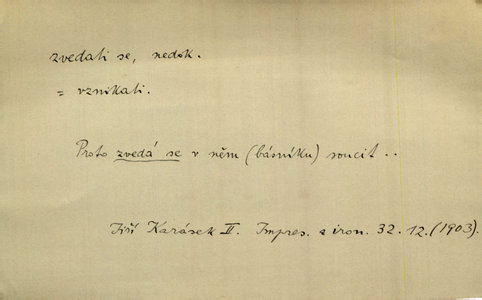 zvedati se, nedok.
= vznikati.
Proto zvedá se v něm (básníku) soucit..
Jiří Karásek II. Impres. a iron. 32. 12. (1903).